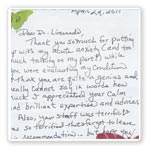 April 29, 2011
Thank you so much for putting
up with my acute anxiety (and too
much talking on my part) while
you were evaluating my condition
I think you are quite a genius and
really cannot say in words how
much I appreciated your calm
and brilliant expertise and advice
Also, your staff was terrific